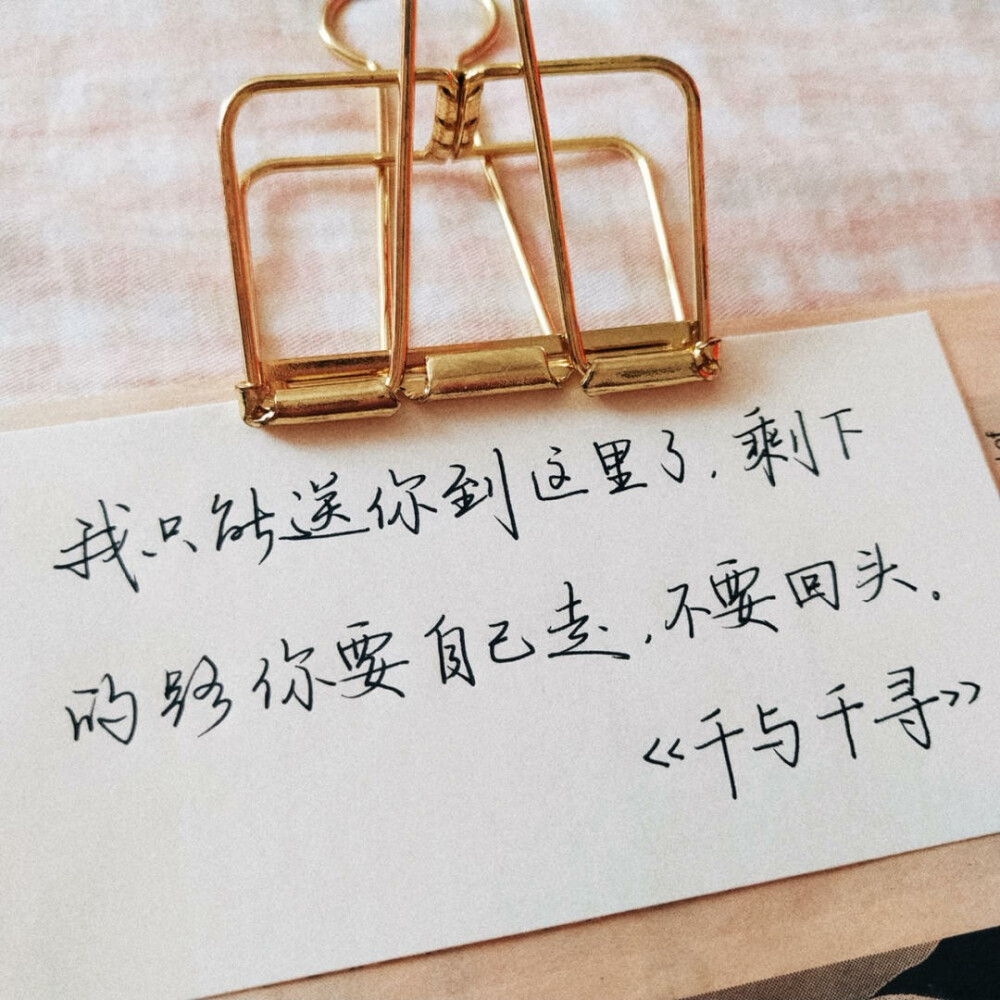 我只能送你到这里了,剩下
的路你要自己走,不要回头.
《千与千寻》